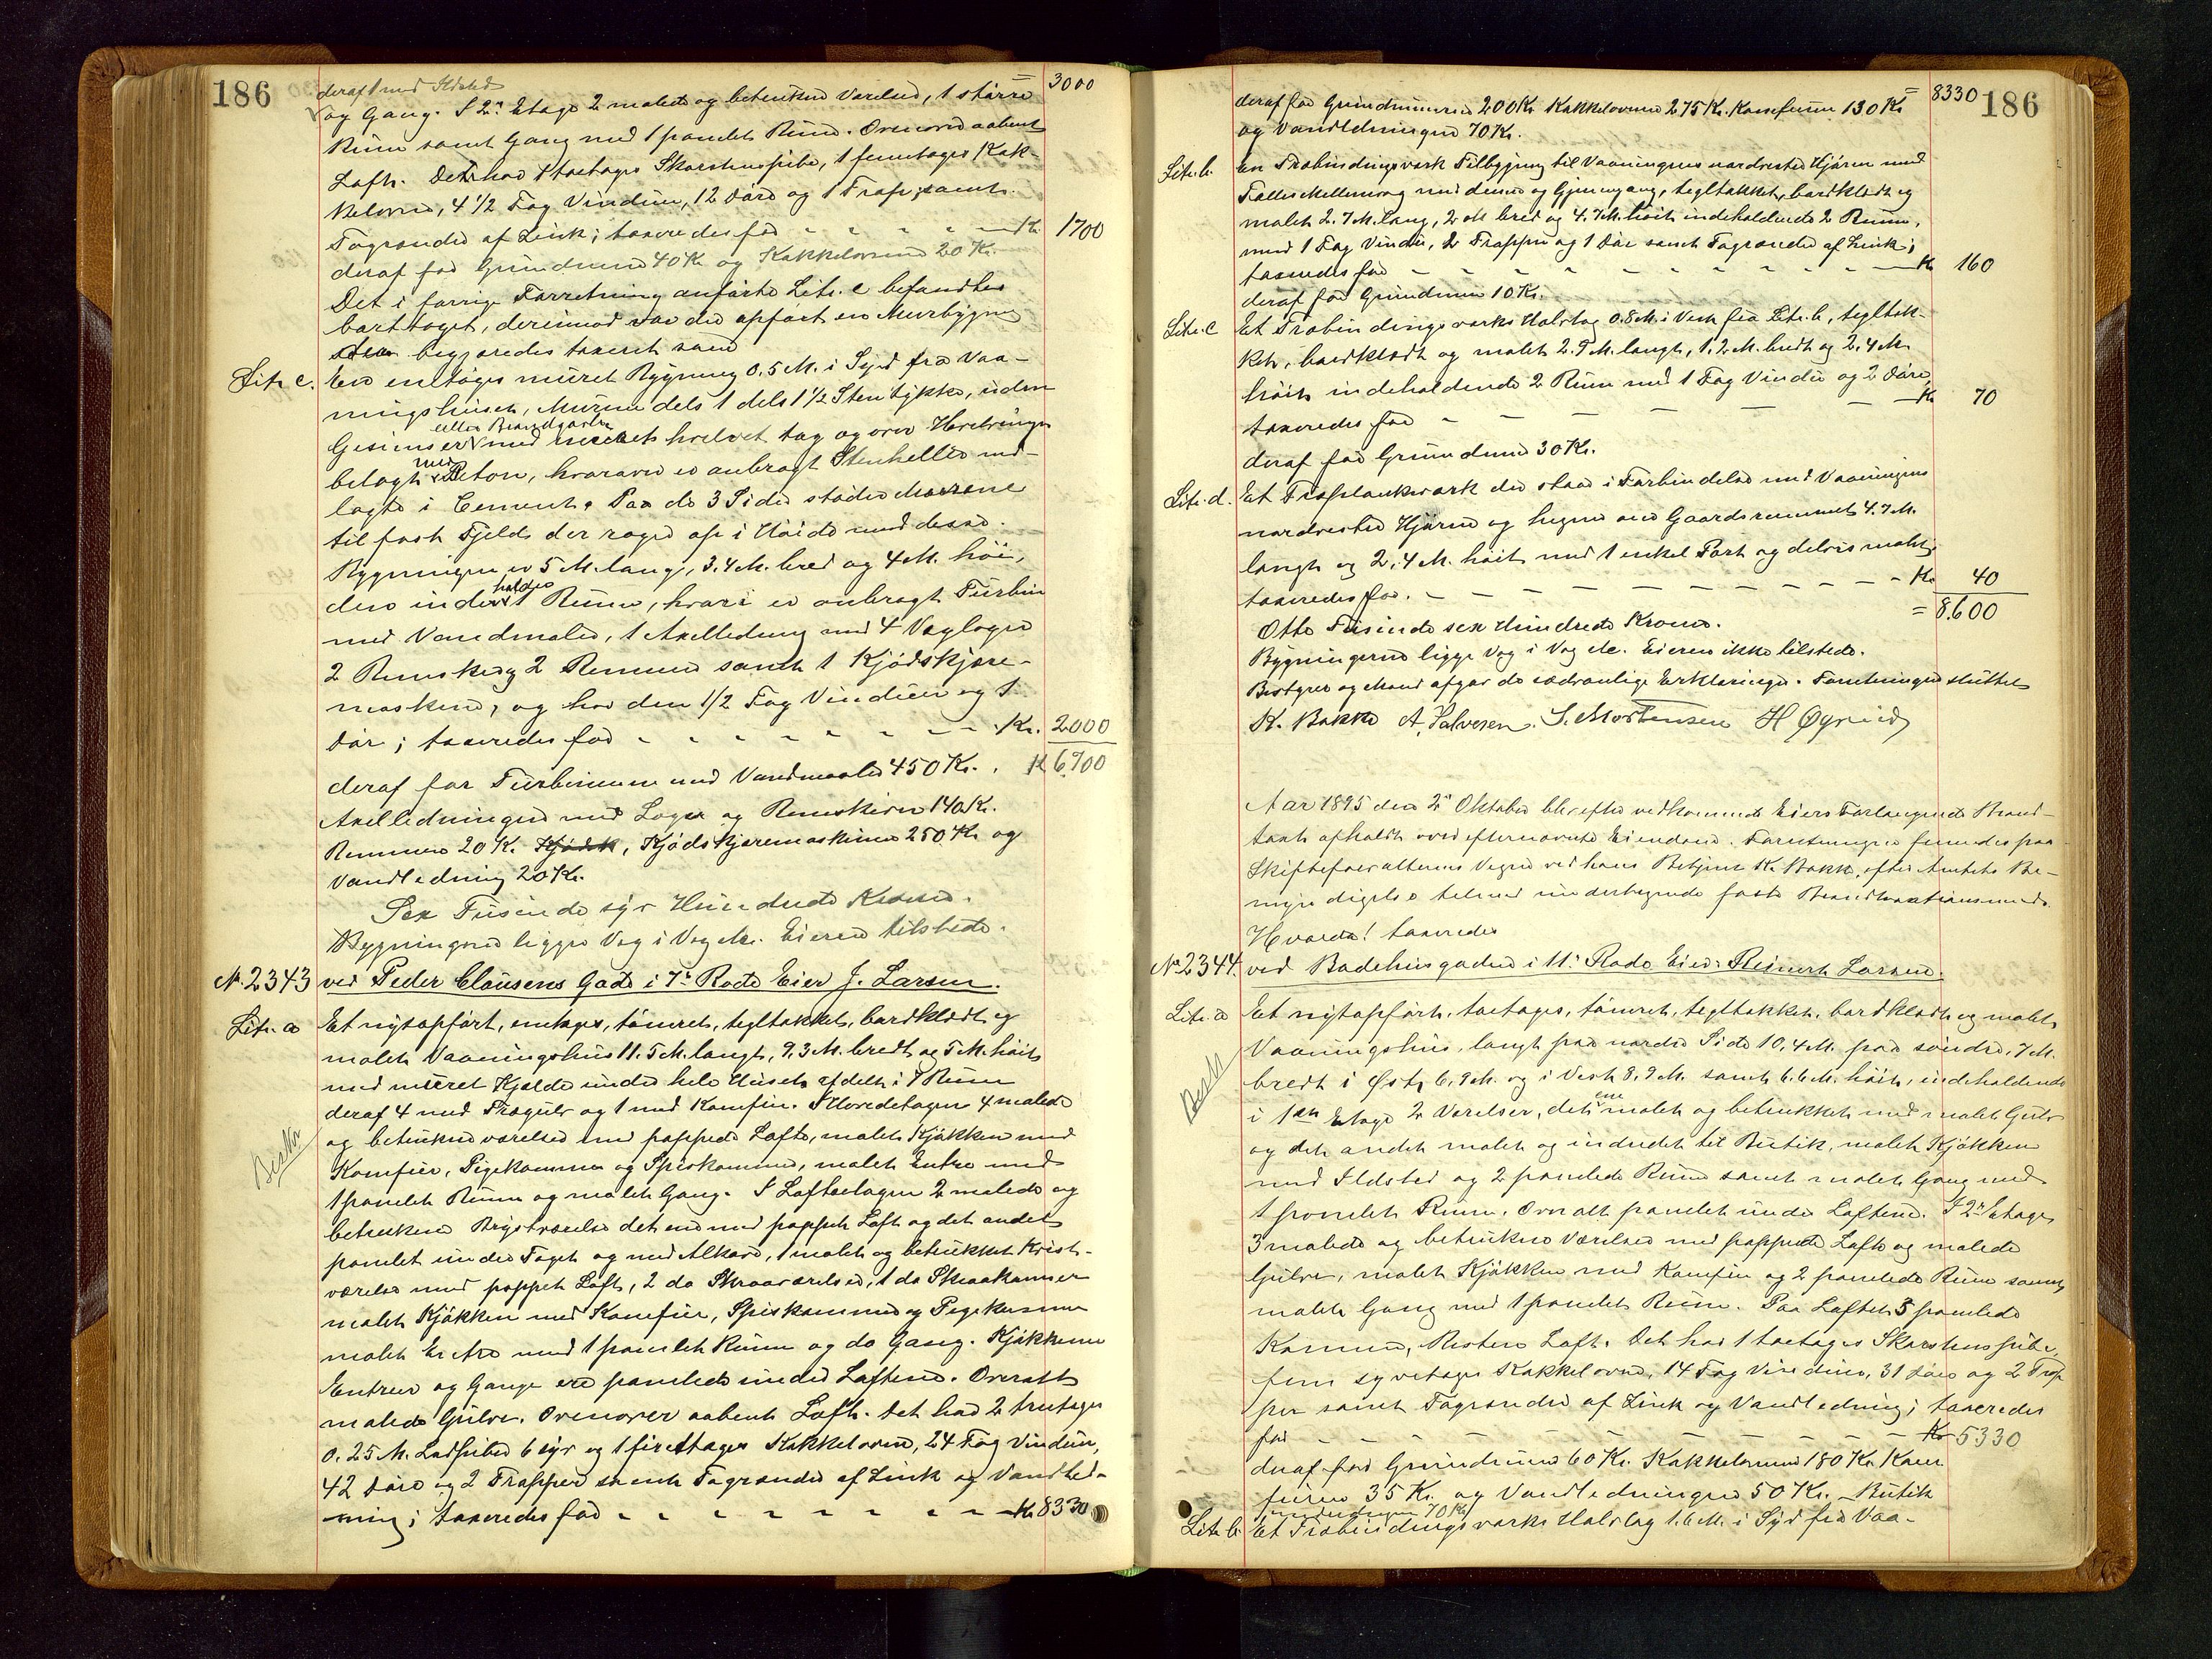 186
deraf 1 med Ildsted 3000
og Gang. I 2n Etage 2 malede og betrukne Værelser, 1 større
Rum samt Gang med 1 panelet Rum. Ovenover aabent
Loft. Det har 1 toetages Skorstenspibe, 1 femetages Kak-
kelovn, 4 1/2 Fag Vinduer, 12 Døre og 1 Trap, samt
Tagrender af Zink; taxeredes for - - - - - Kr. 1700
deraf for Grundmur 40 Kr og Kakkelovnene 20 Kr.
Det i forrige Forretning anførte Litr. c befandtes
borttaget, derimod var der opført en Murbygning
der begjæredes taxeret som
Litr c. En enetages muret Bygning 0.5 M. i Syd fra Vaa-
ningshuset, Murene dels 1 dels 1 1/2 Sten tykke, uden
eller Brandgavle
Gesimser med muret hvelvet tag og over Hvelvingen
med
belagt Beton, hvorover er anbragt Stenheller ned-
lagte i Cement. Paa de 3 Sider støder Murene
til fast Fjeld der rager op i Høide med desse.
Bygningen er 5 M. lang, 3.4 M. bred og 4 M. høi,
holder
den inde 1 Rum, hvori er anbragt Turbin
med Vandmaler, 1 Axelledning med 4 Vaglagre
2 Remskiv 2 Remmer samt 1 Kjødskjære-
maskine, og har den 1/2 Fag Vinduer og 1
Dør; taxeredes for - - - - - - - - Kr. 2000
deraf for Turbinen med Vandmaaler 450 Kr. . K 6700
Axelledningen med Lager og Remskiver 140 Kr.
Remmene 20 K. Kjødsk, Kjødskjæremaskinen 250 Kr og
Vandledning 20 Kr.
Sex Tusinde syv Hundrede Kroner.
Bygningerne ligger Væg i Væg etc. Eieren tilstede.
No. 2343 ved Peder Clausens Gade i 7de Rode Eier J. Larsen.
Litr. a Et nyt opført, enetages, tømret, tegltakket, bordklædt og
malet Vaaningshus 11.5 M. langt, 9.3 M. bredt og 5 M. høit
med muret Kjælder under hele Huset afdelt i 7 Rum
deraf 4 med Trægulv og 1 med Komfur. I Hovedetagen 4 malede
og betrukne værelser med pappede Lofte, malet Kjøkken med
Besktr
Komfur, Pigekammer og Spiskammer, malet Entre med
1 panelet Rum og malet Gang. I Loftsetagen 2 malede og
betrukne Brystværelse det ene med pappet Loft og det andet
panelet under Taget og med Alkove, 1 malet og betrukket Kvist-
værelse med pappet Loft, 2 do Skraaværelser, 1 do Skraakammer
malet Kjøkken med Komfur, Spiskammer og Pigekammer
malet Entre med 1 panelet Rum og do Gang. Kjøkkenene
Entreer og Gange ere panelede under Lofterne. Overalt
malede Gulve. Ovenover aabent Loft. Det har 2 treetages
0.25 M. Ladpiber 6 syv og 1 fireetages Kakkelovne, 24 Fag Vinduer,
42 Døre og 2 Trapper samt Tagrender af Zink og Vandled-
ning; taxeredes for - - - - - - - - - Kr. 8330
8330 186
deraf for Grundmuren 200 Kr. Kakkelovnene 275 Kr. Komfurene 130 Kr
og Vandledningen 70 Kr.
Litr. b. En Træbindingsværk Tilbygning til Vaaningens nordvestre Hjørne med
Fællesskillerum med denne og Gjennemgang, tegltakket, bordklædt og
malet 2.7 M. lang, 2 M. bred og 4.7 M. høit indeholdende 2 Rum,
med 1 Fag Vindu, 2 Trapper og 1 Dør samt Tagrender af Zink;
taxeredes for - - - - - - - - - - Kr 160
deraf for Grundmur 10 Kr.
Litr. c Et Træbindingsværks Halvtag 0.8 M. i Vest fra Litr. b, tegltak-
ket, bordklædt og malet 2.9 M. langt, 1.2 M. bredt og 2.4 M.
høit indeholdende 2 Rum med 1 Fag Vindu og 2 Døre
taxeredes for - - - - - - Kr 70
deraf for Grundmur 30 Kr.
Litr. d. Et Træplankværk der staar i Forbindelse med Vaaningens
nordvestre Hjørne og hegner om Gaardsrummet 4.7 M.
langt og 2.4 M. høit med 1 enkel Port og delvis malet;
taxeredes for. - - - - - - - - - - Kr. 40
= 8.600
Otte Tusinde sex Hundrede Kroner.
Bygningerne ligge Væg i Væg etc. Eieren ikke tilstede.
Bestyrer og Mænd afgav de sædvanlige Erklæringer. Forretningen sluttet
K. Bakke A. Salvesen. S. Mortensen H Øgreid
Aar 1895 den 2n Oktober blev efter vedkommende Eiers Forlangende Brand-
taxt afholdt over efternævnte Eiendom. Forretningen fremmedes paa
Skifteforvalterens Vegne ved hans Betjent K. Bakke, efter Amtets Be-
myndigelse tilmed undertegnede faste Brandtaxtionsmænd.
Hvorda! taxeredes
No 2344. ved Badehusgaden i 11te Rode Eier: Reinert Larsen.
Litr. a Et nyt opført, toetages, tømret, tegltakket, bordklædt og malet
Vaaningshus, langt paa nordre Side 10,4 M. paa søndre, 7 M.
Beskr
bredt i Øst 6.9 M. og i Vest 8.9 M. samt 6.6 M. høit, indeholdende
ene
i 1ste Etage 2 Værelser, det malet og betrukket med malet Gulv
og det andet malet og indredet til Butik, malet Kjøkken
med Ildsted og 2 panelede Rum samt malet Gang med
1 panelet Rum. Overalt panelet under Lofterne. I 2n Etage
3 malede og betrukne Værelser med pappede Lofte og malede
Gulve, malet Kjøkken med Komfur og 2 panelede Rum samt
malet Gang med 1 panelet Rum. Paa Loftet 3 panelede
Kamre, Resten Loft. Det har 1 toetages Skorstenspibe,
fem syvetages Kakkelovne, 14 Fag Vinduer, 31 Døre og 2 Trap-
per samt Tagrender af Zink og Vandledning; taxeredes
for - - - - - - - - - Kr 5330
deraf for Grundmur 60 Kr. Kakkelovnene 180 Kr. Kom-
furen 35 Kr. og Vandledningen 50 Kr. - Butik
indredningen 70 Kr
Litr b. Et Træbindingsværks Halvtag 1.6 M. i Syd fra Vaa-